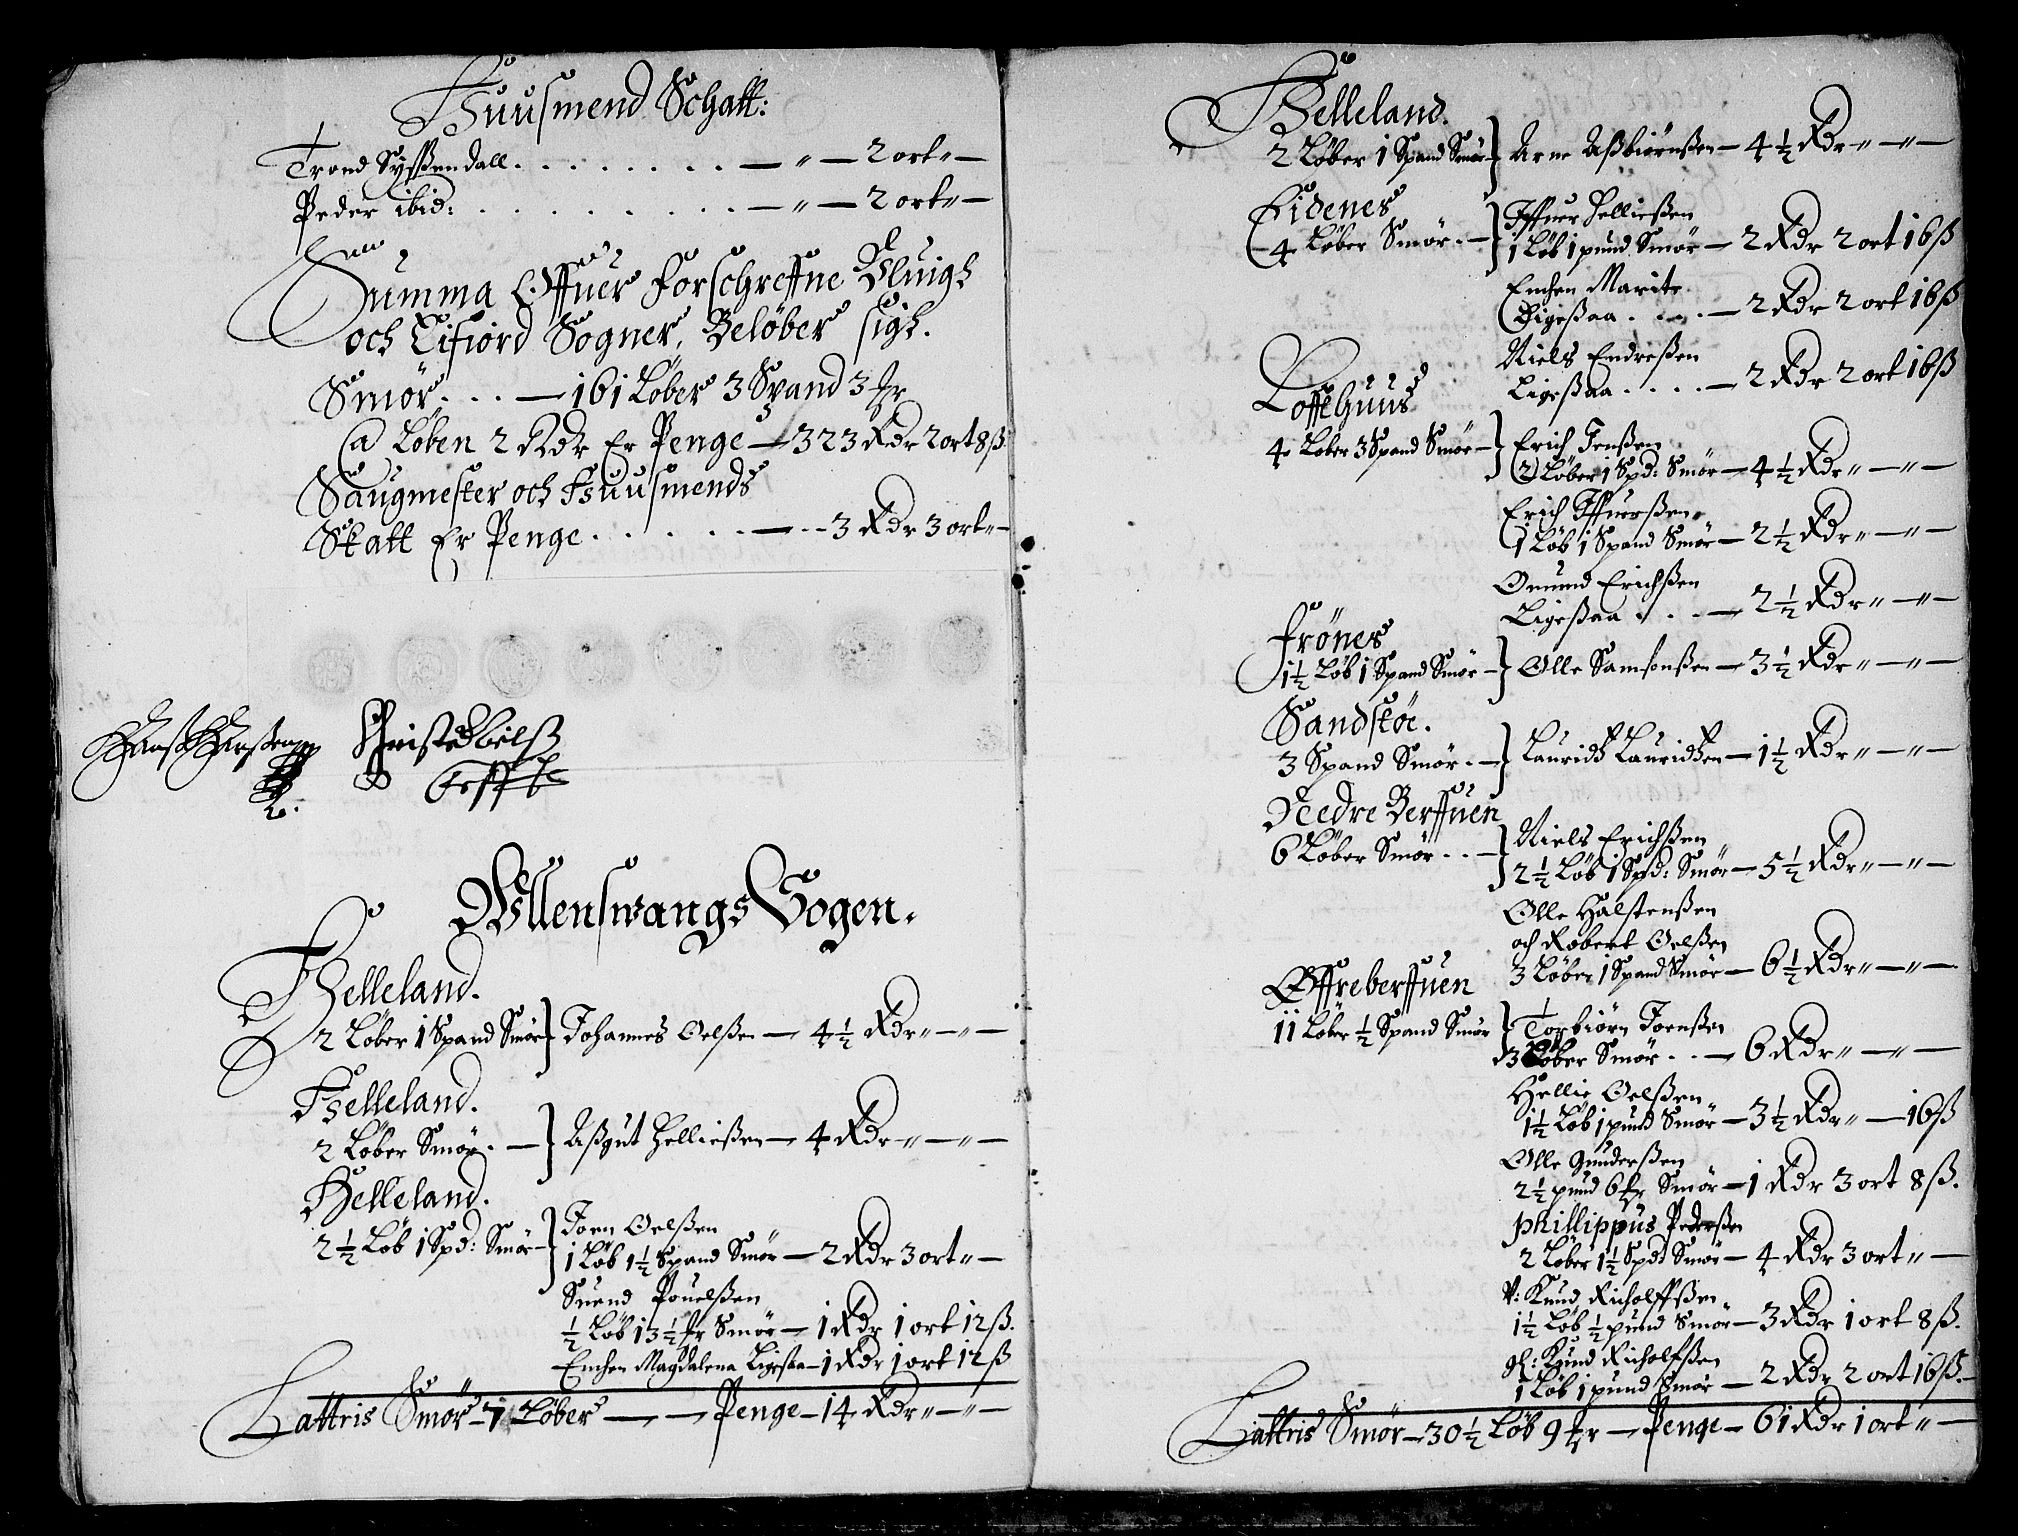 Huusmend Schatt:
Trond Syssendall . . . . . . . — " — 2 ort " —
Peder ibid: . . . . . . . . — " — 2 ort " —
Summa Offuer forschreffne Uluigh
och Eifiord Sogner, Beløber sigh.
Smør . . . — 161 Løber 3 Spand 3 fr
@ Løben 2 Rdr Er Penge — 323 Rdr 2 ort 8 ß
Saugmester och Huusmends
Skatt Er Penge . . . . . . — - 3 Rdr 3 ort " —
Ullenswangs Sogen.
Helleland.
2 Løber 1 Spand Smør } Johannes Oelßen — 4 ½ Rdr " — " —
Helleland.
2 Løber Smør. — } Aßgut Helließen — 4 Rdr " — " —
Helleland.
2 ½ Løb 1 Spd: Smør — } Joen Oelßen
1 Løb 1 ½ Spand Smør — 2 Rdr 3 ort " —
Suend Pouelßen
½ Løb 13 ½ fr Smør — 1 Rdr 1 ort 12 ß.
Enchen Magdalena Ligesaa — 1 Rdr 1 ort 12 ß
Lattris Smør — 7 Løber — — Penge — 14 Rdr " — " —
Helleland.
2 Løber 1 Spand Smør } Arne Aßbiørnßen — 4 ½ Rdr " — " —
Eidenes
4 Løber Smør . — } Iffuer Helließen
1 Løb 1 pund Smør — 2 Rdr 2 ort 16 ß
Enchen Marite
Ligeßaa . . . . — 2 Rdr 2 ort 16 ß
Niels Endreßen
Ligeßaa . . . . — 2 Rdr 2 ort 16 ß
Loffthuus
4 Løber 3 Spand Smør — } Erich Jenßen
2 Løber 1 Spd: Smør — 4 ½ Rdr " — " —
Erich Iffuerßen.
1 Løb 1 Spand Smør — 2 ½ Rdr " — " —
Omund Erichßen
Ligeßaa . . . — 2 ½ Rdr " — " —
Frønes
1 ½ Løb 1 Spand Smør — } Olle Samsonßen — 3 ½ Rdr " — " —
Sandstøe.
3 Spand Smør . — } Lauridtz Lauridtzen — 1 ½ Rdr " — " —
Needre Berffuen
6 Løber Smør . . — } Niels Erichßen
2 ½ Løb 1 Spd: Smør — 5 ½ Rdr " — " —
Olle Halstenßen
och Robert Oelßen
3 Løber 1 Spand Smør — 6 ½ Rdr " — " —
Øffreberffuen
11 Løber ½ Spand Smør } Torbiørn Joenßen
3 Løber Smør . . — 6 Rdr " — " —
Hellie Oelßen.
1 ½ Løb 1 pund Smør — 3 ½ Rdr " — 16 ß
Olle Gunderßen
2 ½ pund 6 fr Smør — 1 Rdr 3 ort 8 ß.
Phillippus Pederßen
2 Løber 1 ½ Spdt Smør — 4 Rdr 3 ort " —
V: Knud Richolffßen.
1 ½ Løb ½ pund Smør — 3 Rdr 1 ort 8 ß.
gl: Knud Richolfßen
1 Løb 1 pund Smør — 2 Rdr 2 ort 16 ß.
Lattris Smør — 30 ½ Løb 9 fr — Penge — 61 Rdr 1 ort " —